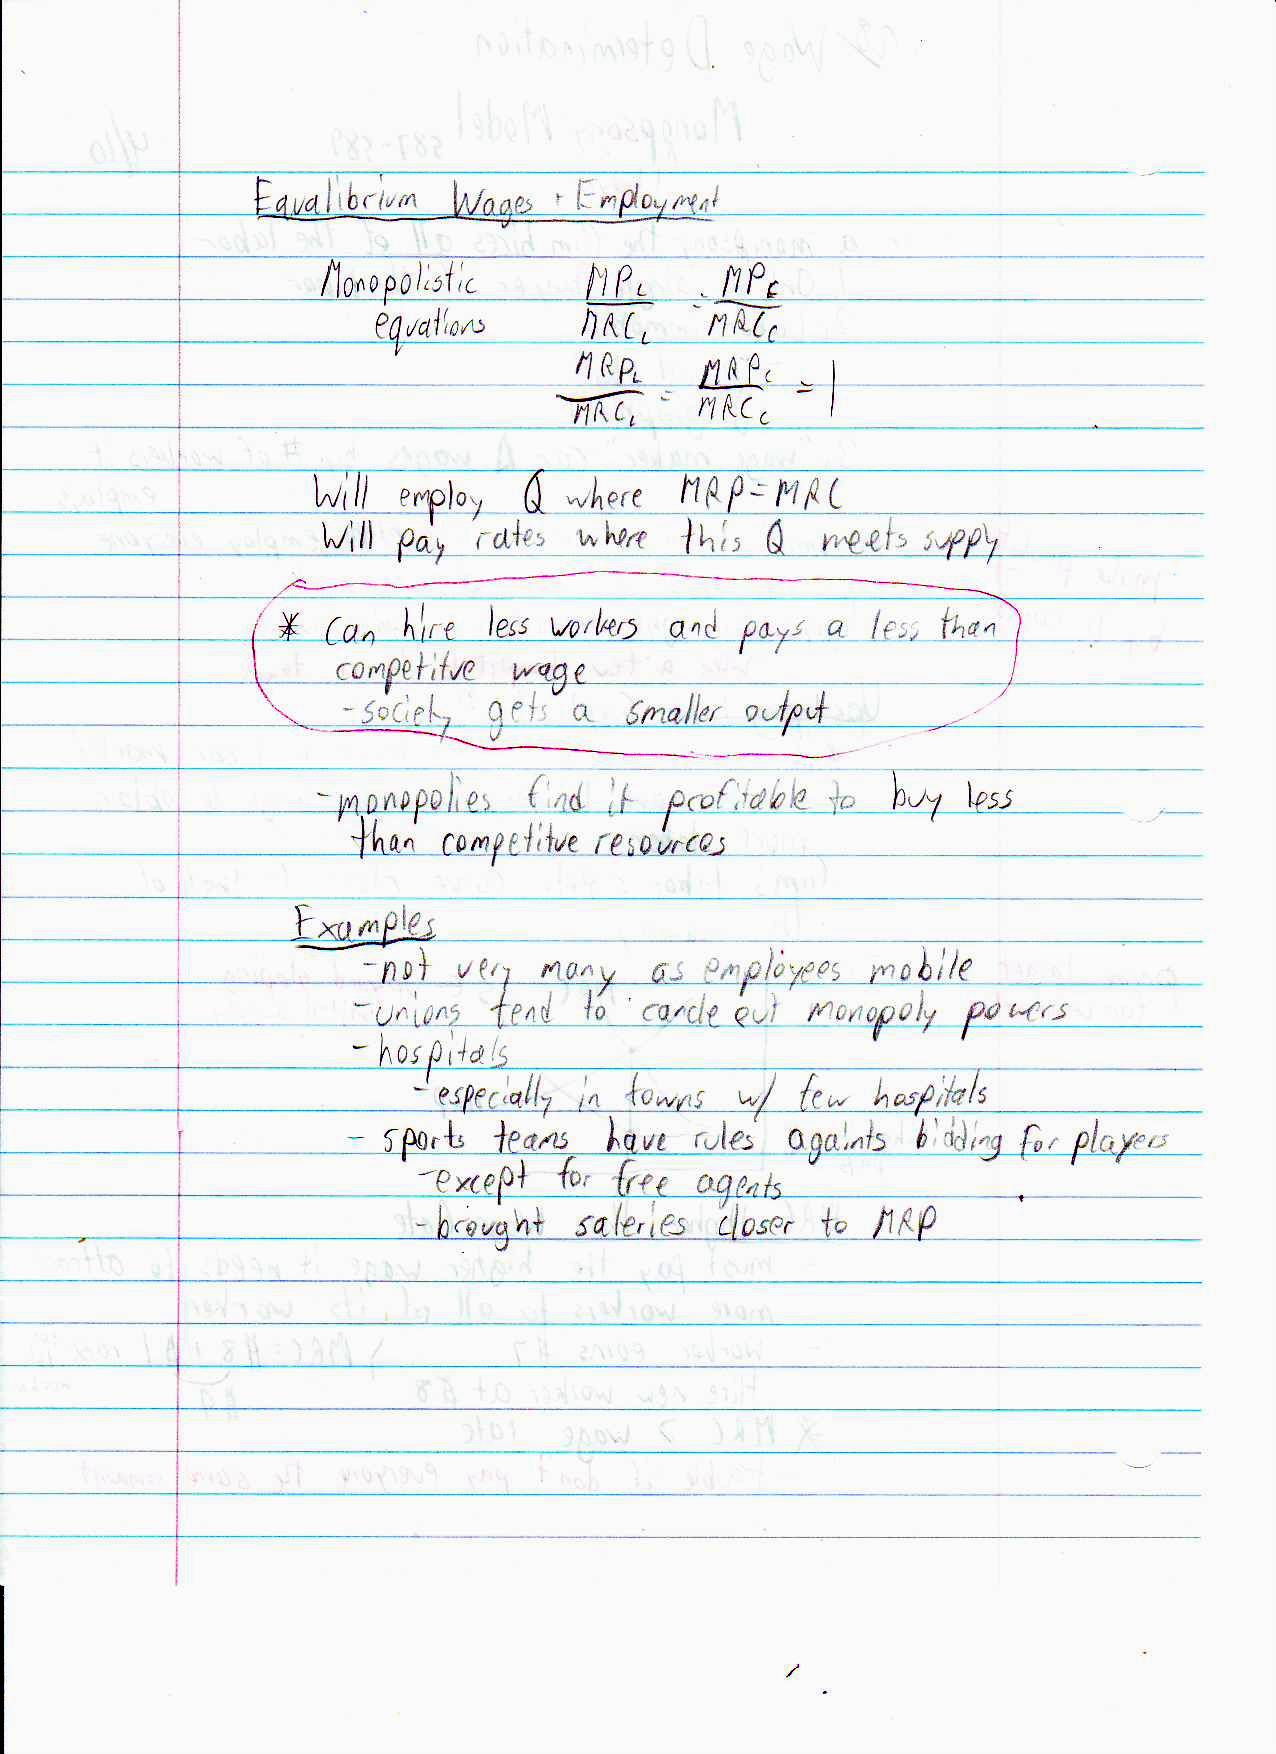 Equalibrium Wages + Employment
Monopolistic equations
MPL / MRCL = MPC / MRCC
MRPL / MRCL = MRPC / MRCC = 1
Will employ Q where MRP=MRC
Will pay rates where this Q meets supply
* Can hire less workers and pays a less than
competitve wage
-society gets a smaller output
-monopolies find it profitable to buy less
than competitive resources
Examples
-not very many as employees mobile
-unions tend to cancle out monopoly powers
-hospitals
-especially in towns w/ few hospitals
- sports teams have rules againts bidding for players
-except for free agents
-brought saleries closer to MRP